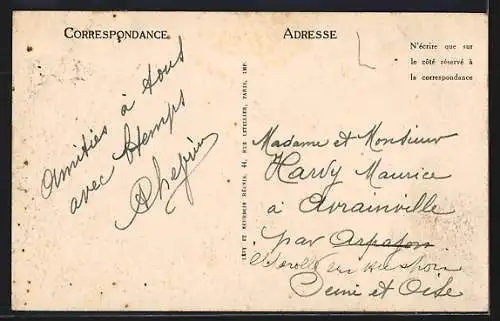 CORRESPONDANCE
Amitiés à tous
avec
ADRESSE
N'écrire que sur
le côté réservé à
la correspondance
LÉVY ET NEURDEIN RÉUNIS, 44, RUE LETELLIER, PARIS, IMP.
Madame et Monsieur
Hardy Maurice
à Avrainville
par Arpajon
Seine et Oise